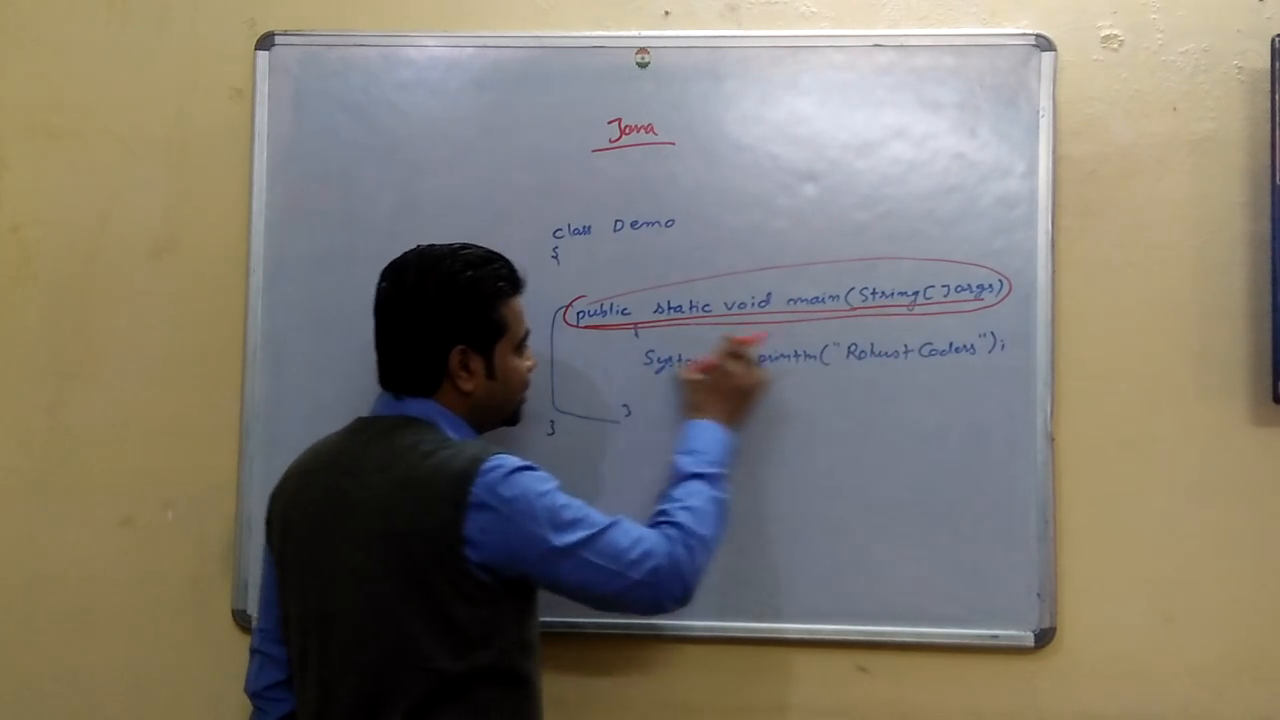 Java
class Demo
{
public static void main(String[]args)
{
println("Robust Coders");
}
}